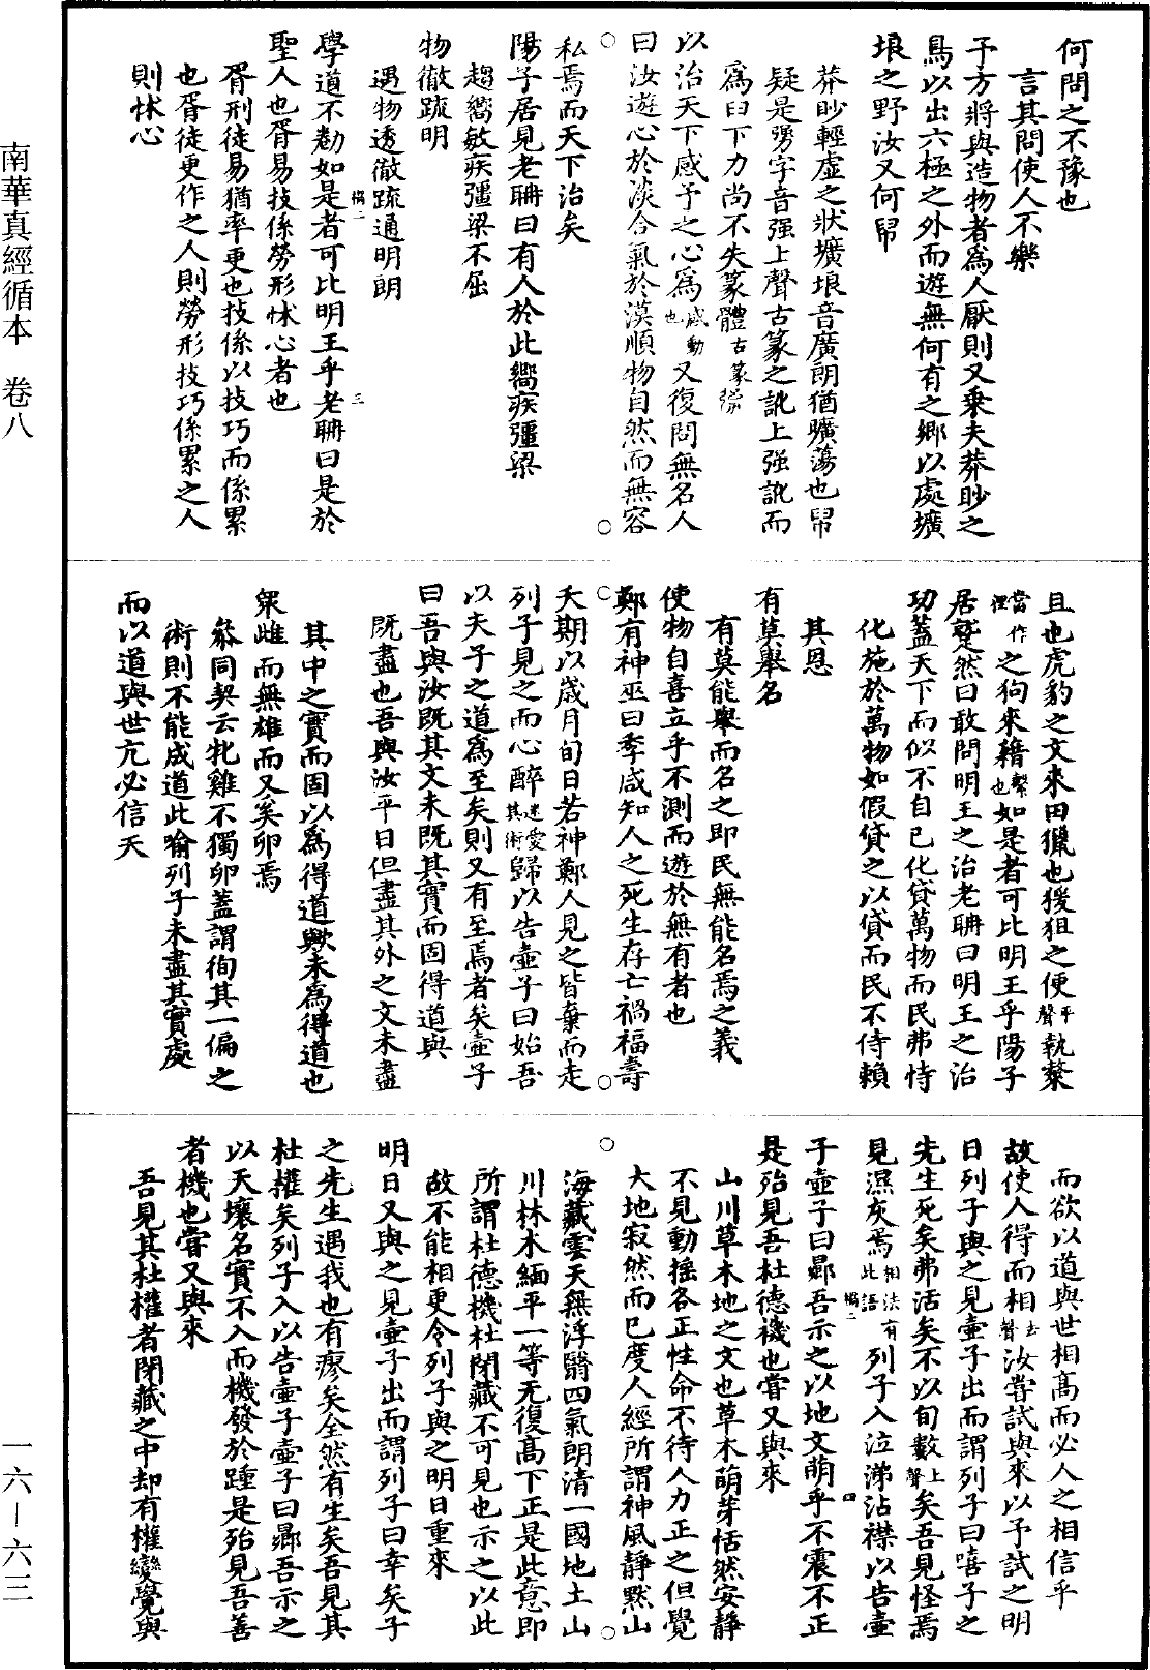 何問之不豫也
言其問使人不樂
予方將與造物者爲人厭則又乗夫莽眇之
鳥以出六極之外而遊無何有之鄉以處壙
埌之野汝又何帠
莽眇輕虛之狀壙埌音廣朗猶曠蕩也帠
疑是㔢字音强上聲古篆之訛上强訛而
爲曰下力尚不失篆體古篆彊
以治天下感予之心爲感動也又復問無名人
曰汝遊心於淡合氣於漠順物自然而無容
私焉而天下治矣
陽子居見老聃曰有人於此嚮疾彊梁
趨嚮敏疾彊梁不屈
物徹䟽明
遇物透徹疏通明朗
學道不勌如是者可比明王乎老聃曰是於
聖人也胥易技係勞形怵心者也
胥刑徒易猶率更也技係以技巧而係累
也胥徒更作之人則勞形技巧係累之人
則怵心
且也虎豹之文來田獵也猨狙之便平聲執斄
當作狸之狗來藉繫也如是者可比明王乎陽子
居蹵然曰敢問明王之治老聃曰明王之治
功蓋天下而似不自已化貸萬物而民弗恃
化施於萬物如假貸之以貸而民不恃賴
其恩
有莫舉名
有莫能舉而名之即民無能名焉之義
使物自喜立乎不測而遊於無有者也
鄭有神巫曰季咸知人之死生存亡禍福壽
夭期以歲月旬日若神鄭人見之皆棄而走
列子見之而心醉迷愛其術歸以告壺子曰始吾
以夫子之道爲至矣則又有至焉者矣壺子
曰吾與汝既其文未既其實而固得道與
既盡也吾與汝平日但盡其外之文未盡
其中之實而固以爲得道歟未爲得道也
衆雌而無雄而又奚卵焉
叅同契云牝雞不獨卵蓋謂徇其一偏之
術則不能成道此喻列子未盡其實處
而以道與世亢必信夫
而欲以道與世相高而必人之相信乎
故使人得而相去聲汝嘗試與來以予試之明
日列子與之見壺子出而謂列子曰嘻子之
先生死矣弗活矣不以旬數上聲矣吾見怪焉
見濕灰焉相法有此語列子入泣涕沾襟以告壺
子壺子曰鄙吾示之以地文萌乎不震不正
是殆見吾杜德機也嘗又與來
山川草木地之文也草木萌芽恬然安靜
不見動搖各正性命不待人力正之但覺
大地寂然而已度人經所謂神風靜黙山
海藏雲天無浮翳四氣朗清一國地土山
川林木緬平一等无復高下正是此意即
所謂杜德機杜閉藏不可見也示之以此
故不能相更令列子與之明日重來
明日又與之見壺子出而謂列子曰幸矣子
之先生遇我也有瘳矣全然有生矣吾見其
杜權矣列子入以告壺子壺子曰鄙吾示之
以天壤名實不入而機發於踵是殆見吾善
者機也嘗又與來
吾見其杜權者閉藏之中却有權變覺與
南華真經循本　卷八
一六—六三